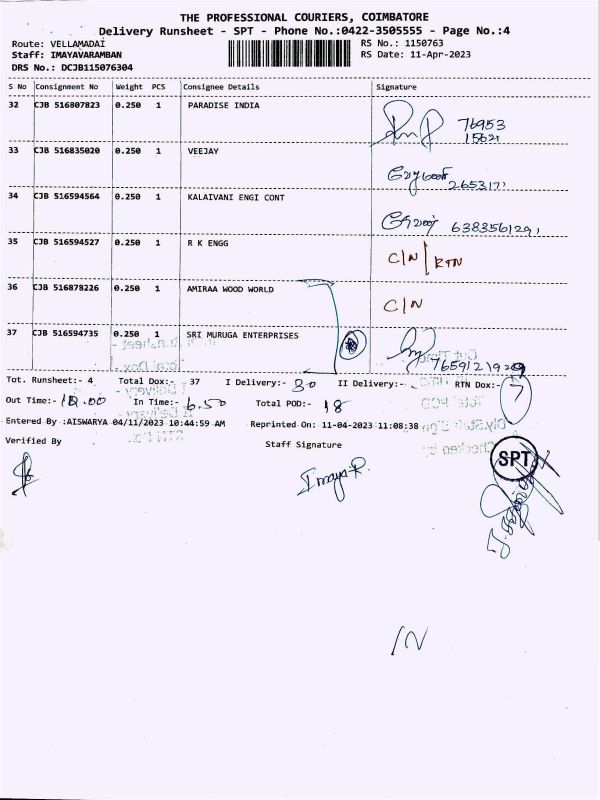 THE PROFESSIONAL COURIERS, COIMBATORE
Delivery Runsheet - SPT - Phone No.:0422-3505555 - Page No.:4
Route: VELLAMADAI
RS No.: 1150763
Staff: IMAYAVARAMBAN
RS Date: 11-Apr-2023
DRS No.: DCJB115076304
S No Consignment No Weight PCS Consignee Details Signature
32 CJB 516807823 0.250 1 PARADISE INDIA
76953
15621
33 CJB 516835020 0.250 1 VEEJAY
2653171
34 CJB 516594564 0.250 1 KALAIVANI ENGI CONT
6383561291
35 CJB 516594527 0.250 1 R K ENGG C/N RTN
36 CJB 516878226 0.250 1 AMIRAA WOOD WORLD C/N
37 CJB 516594735 0.250 1 SRI MURUGA ENTERPRISES
Tot. Runsheet:- 4 Total Dox:- 37 I Delivery:- 30 II Delivery:- RTN Dox:- 7
Out Time:- In Time:- 6.50 Total POD:- 18
Entered By :AISWARYA 04/11/2023 10:44:59 AM Reprinted On: 11-04-2023 11:08:38
Verified By Staff Signature
SPT
Imaya.R.